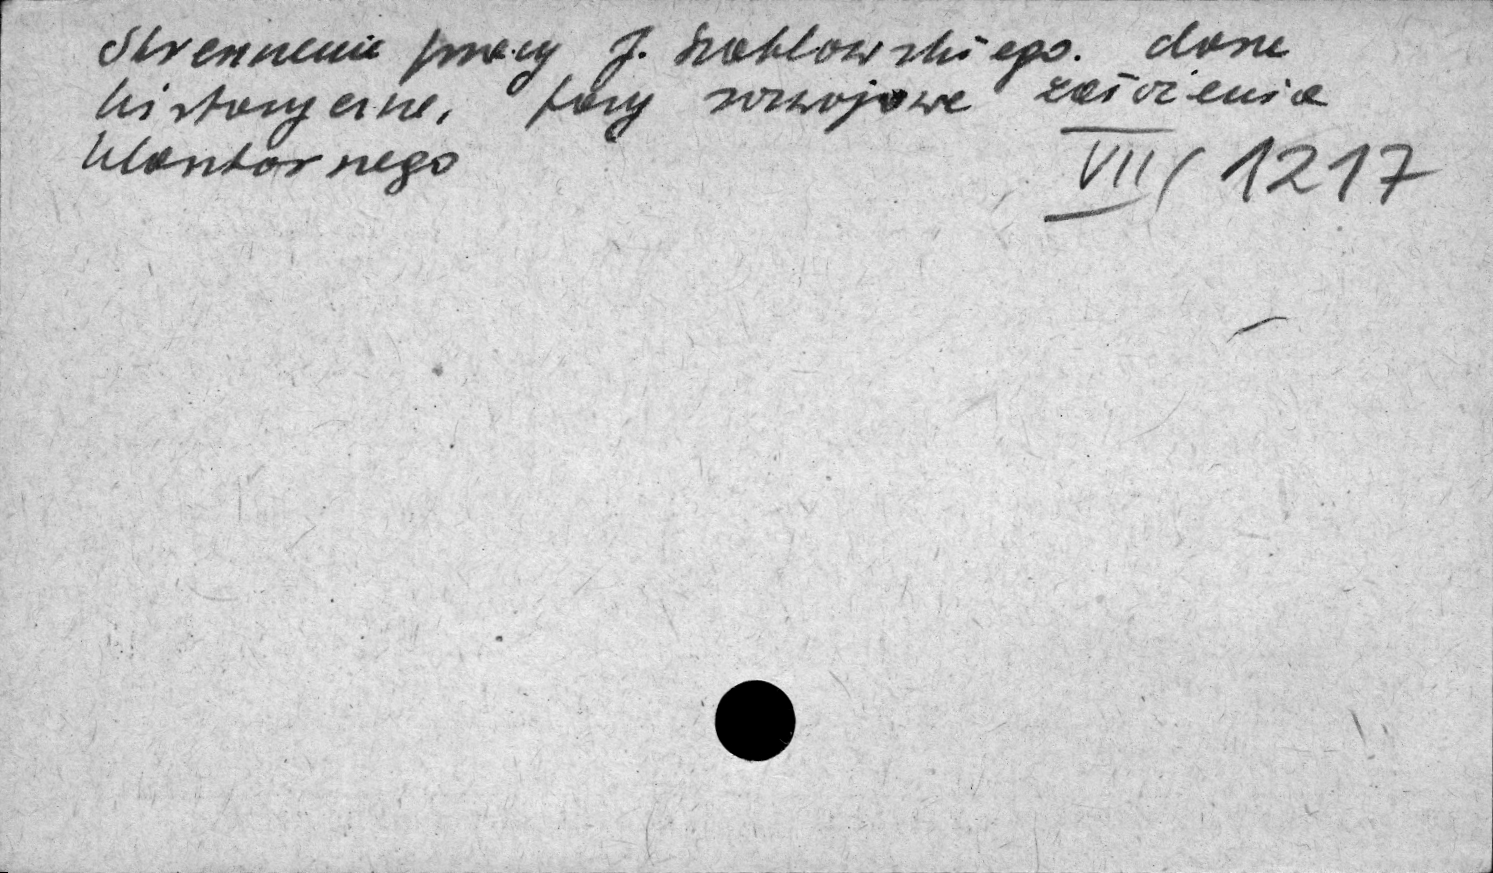 Streszczenie pracy J. Szablowskiego. dane
historyczne, fazy rozwojowe założenia
klasztornego
VII/1217